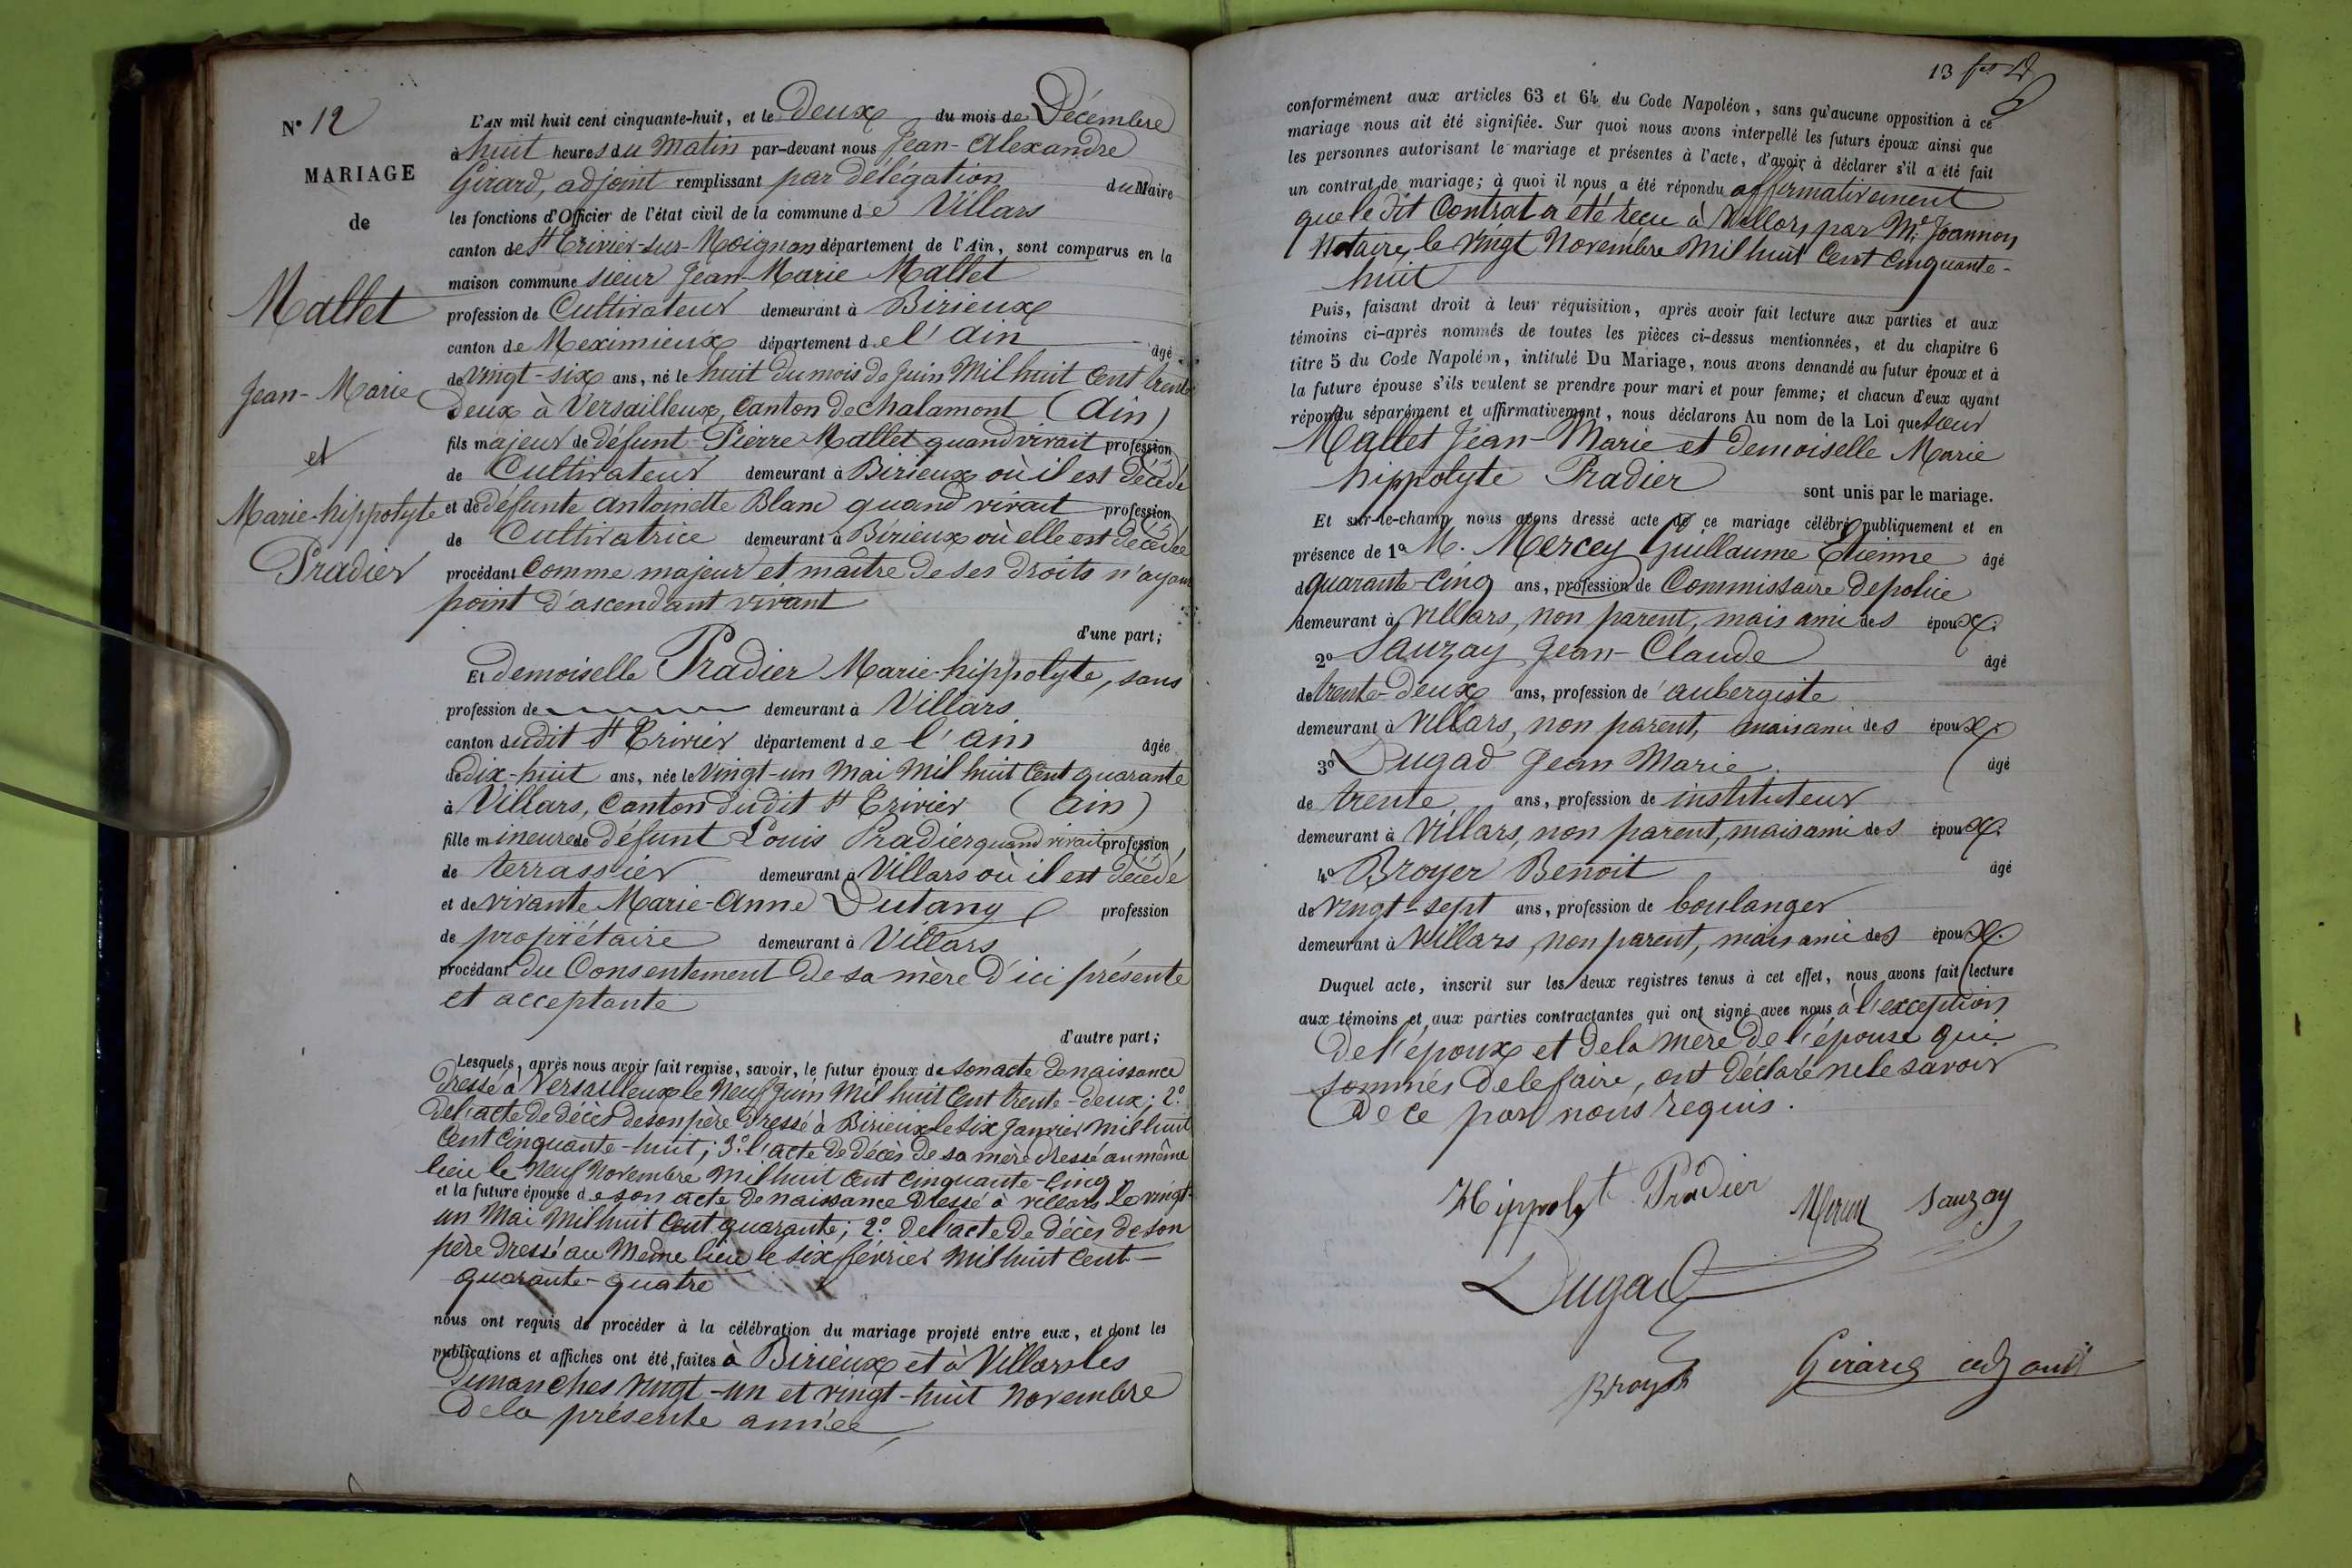 N° 12
MARIAGE
de
Mallet
Jean-Marie
et
Marie-hippolyte
Pradier
L'AN mil huit cent cinquante-huit, et le Deux du mois de Décembre
à huit heures du Matin par-devant nous Jean-Alexandre
Girard, adjoint remplissant par délégation du Maire
les fonctions d'Officier de l'état civil de la commune de Villars
canton de St Trivier-sur-Moignans département de l'Ain, sont comparus en la
maison commune sieur Jean-Marie Mallet
profession de Cultivateur demeurant à Birieux
canton de Meximieux département de l'Ain âgé
de vingt-six ans, né le huit du mois de Juin Mil huit Cent trente
deux à Versailleux, Canton de chalamont (Ain)
fils majeur de défunt Pierre Mallet quand vivait profession
de Cultivateur demeurant à Birieux où il est décédé
et de défunte Antoinette Blanc quand vivait profession
de Cultivatrice demeurant à Birieux où elle est décédée
procédant Comme majeur et maître de ses droits n'ayant
point d'ascendant vivant
d'une part;
Et demoiselle Pradier Marie-hippolyte, sans
profession de demeurant à Villars
canton dudit St Trivier département de l'Ain âgée
de dix-huit ans, née le Vingt-un Mai Mil huit Cent quarante
à Villars, Canton dudit St Trivier (Ain)
fille mineure de défunt Louis Pradier quand vivait profession
de terrassier demeurant à Villars où il est décédé
et de vivante Marie-Anne Dutang profession
de propriétaire demeurant à Villars
procédant du Consentement de sa mère d'ici présente
et acceptante
d'autre part;
Lesquels, après nous avoir fait remise, savoir, le futur époux de son acte de naissance
dressé à Versailleux le Neuf Juin Mil huit Cent trente-deux; 2°
de l'acte de décès de son père dressé à Birieux le six Janvier mil huit
Cent Cinquante-huit; 3° l'acte de décès de sa mère dressé au même
lieu le Neuf Novembre Mil huit Cent Cinquante-Cinq
et la future épouse de son acte de naissance dressé à Villars le vingt-
un Mai Mil huit Cent quarante; 2° de l'acte de décès de son
père dressé au Même lieu le six février Mil huit Cent
quarante-quatre
nous ont requis de procéder à la célébration du mariage projeté entre eux, et dont les
publications et affiches ont été faites à Birieux et à Villars les
Dimanches vingt-un et vingt-huit Novembre
de la présente année
13
conformément aux articles 63 et 64 du Code Napoléon, sans qu'aucune opposition à ce
mariage nous ait été signifiée. Sur quoi nous avons interpellé les futurs époux ainsi que
les personnes autorisant le mariage et présentes à l'acte, d'avoir à déclarer s'il a été fait
un contrat de mariage; à quoi il nous a été répondu affirmativement
que le dit Contrat a été reçu à Villars par Me Joannon
Notaire, le vingt Novembre Mil huit Cent Cinquante-
huit
Puis, faisant droit à leur réquisition, après avoir fait lecture aux parties et aux
témoins ci-après nommés de toutes les pièces ci-dessus mentionnées, et du chapitre 6
titre 5 du Code Napoléon, intitulé Du Mariage, nous avons demandé au futur époux et à
la future épouse s'ils veulent se prendre pour mari et pour femme; et chacun d'eux ayant
répondu séparément et affirmativement, nous déclarons Au nom de la Loi que sieur
Mallet Jean-Marie et demoiselle Marie
hippolyte Pradier sont unis par le mariage.
Et sur-le-champ nous avons dressé acte de ce mariage célébré publiquement et en
présence de 1° M. Mercey Guillaume Etienne âgé
de quarante-Cinq ans, profession de Commissaire de police
demeurant à Villars, non parent, mais ami des époux.
2° Sauzay Jean-Claude âgé
de trente-deux ans, profession de aubergiste
demeurant à Villars, non parent, mais ami des époux.
3° Dugad Jean Marie âgé
de trente ans, profession de instituteur
demeurant à Villars, non parent, mais ami des époux.
4° Broyer Benoit âgé
de vingt-sept ans, profession de boulanger
demeurant à Villars, non parent, mais ami des époux.
Duquel acte, inscrit sur les deux registres tenus à cet effet, nous avons fait lecture
aux témoins et aux parties contractantes qui ont signé avec nous à l'exception
de l'époux et de la mère de l'épouse qui
sommés de le faire, ont déclaré ne le savoir
de ce par nous requis.
Hippolyt Pradier Sauzay
Dugad
Broyer Girard adjoint